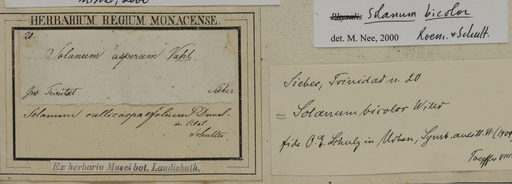 HERBARIUM REGIUM MONACENSE.
20.
Solanum asperum Vahl.
Ins Trinitat. Sieber
Solanum callicarpaefolium Dunal.
in litt.
Schultes.
Ex herbario Musei bot. Landishuth.
Physalis Solanum bicolor
det. M. Nee, 2000 Roem. & Schult.
Sieber, Trinidad n. 20
= Solanum bicolor Willd
fide O. E. Schulz in Urban, Symb. antill. VI (1909